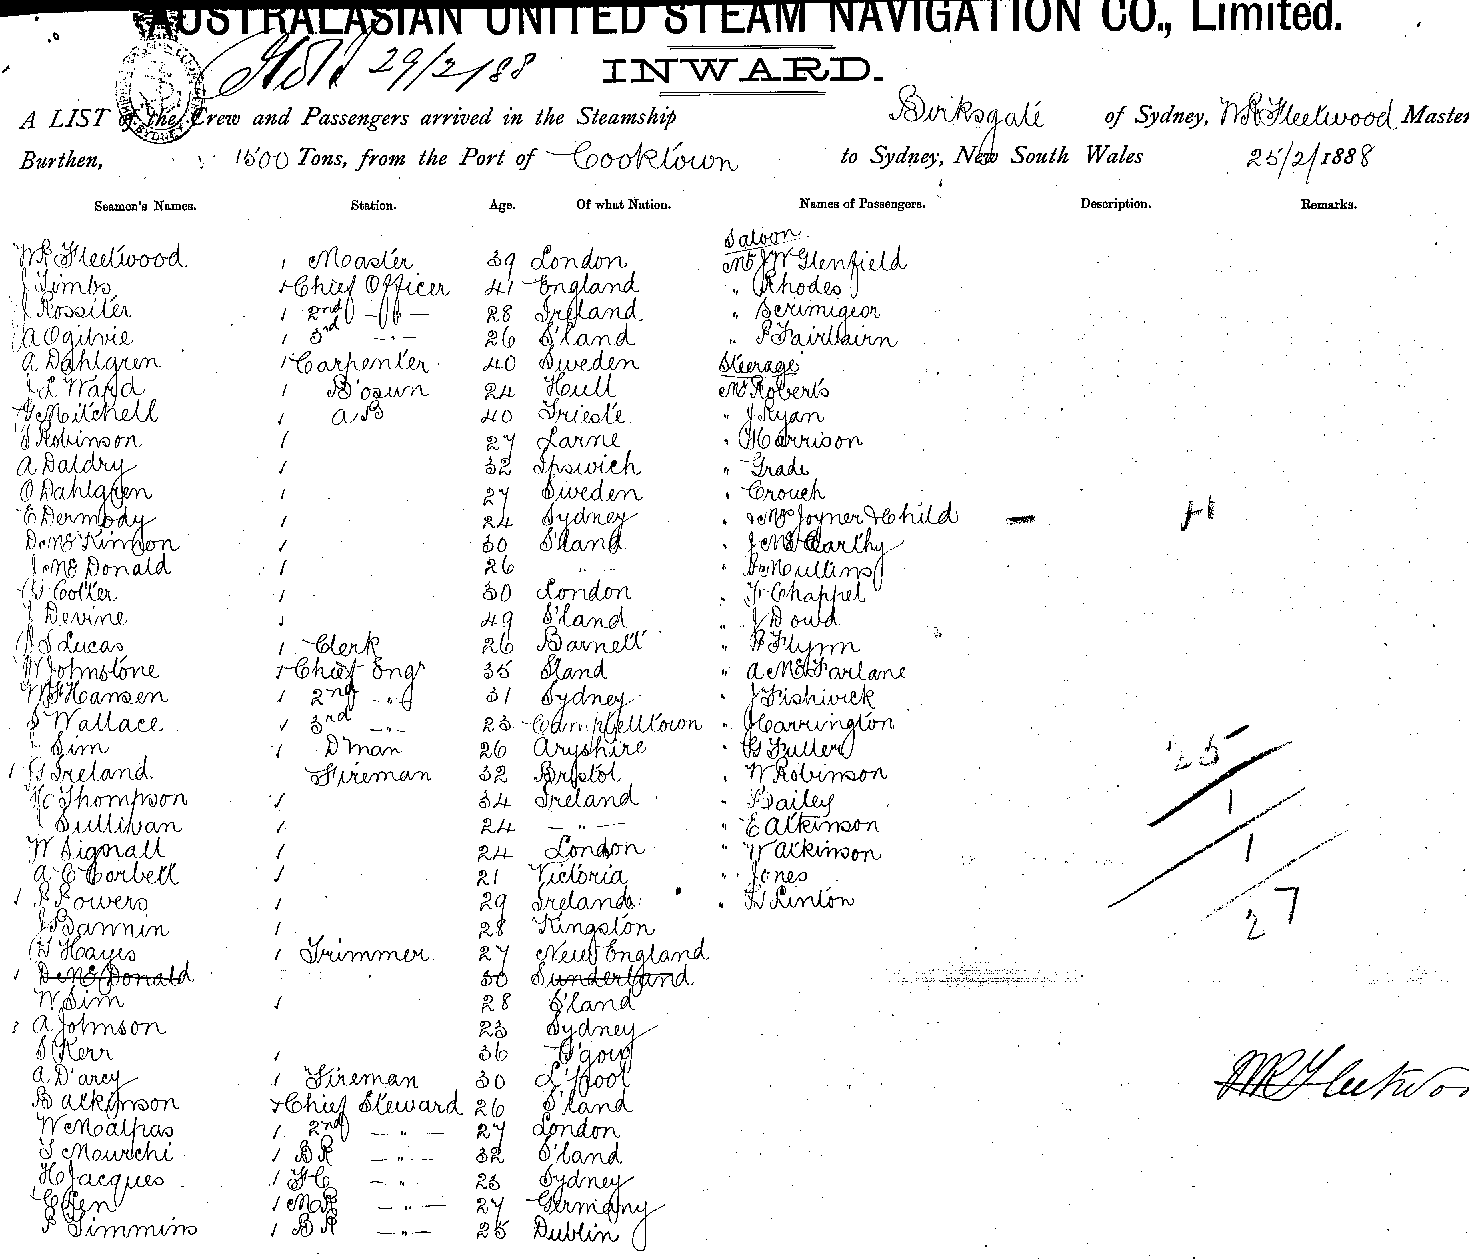 AUSTRALASIAN UNITED STEAM NAVIGATION CO., Limited.
29/2/88 INWARD.
A LIST of the Crew and Passengers arrived in the Steamship Birksgate of Sydney, WR Fleetwood Master
Burthen, 1500 Tons, from the Port of Cooktown to Sydney, New South Wales 25/2/1888
Seamen's Names. Station. Age. Of what Nation. Names of Passengers. Description. Remarks.
Saloon
WR Fleetwood 1 Master 39 London Mr JW Glenfield
J Timbs 1 Chief Officer 41 England " Rhodes
J Rossiter 1 2nd -"- 28 Ireland " Scrimigeor
A Ogilvie 1 3rd -"- 26 S'land " P Fairbairn
A Dahlgren 1 Carpenter 40 Sweden Steerage
J L Ward 1 B'osun 24 Hull Mr Roberts
G Mitchell 1 AB 40 Trieste " J Ryan
J Robinson 1 27 Larne " Harrison
A Daldry 1 32 Ipswich " Grade
O Dahlgren 1 27 Sweden " Crouch
E Dermody 1 24 Sydney " & Mrs Joyner & Child
D McKinnon 1 30 S'land " J McCarthy
J McDonald 1 26 " " Mullins
Cotter 1 30 London " Chappel
J Devine 1 49 S'land " J Dowd
S Lucas 1 Clerk 26 Barnett " P Flynn
W Johnstone 1 Chief Engr 35 S'land " A McFarlane
Hansen 1 2nd -"- 31 Sydney " J Fishwick
S Wallace 1 3rd -"- 23 Campbelltown " Harrington
Sim 1 D'man 26 Aryshire " G Fuller
Ireland Fireman 32 Bristol " W Robinson
Thompson 1 34 Ireland " Bailey
Sullivan 1 24 -"- " E Atkinson
W Signall 1 24 London " W Atkinson
A C Corbett 1 21 Victoria " Jones
P Powers 1 29 Ireland " H Linton
J Bannin 1 28 Kingston
Hayes 1 Trimmer 27 New England
D McDonald 30 Sunderland
W Sim 1 28 S'land
A Johnson 23 Sydney
S Kerr 1 36 G'gow
A D'arcy 1 Fireman 30 L'pool
B Atkinson 1 Chief Steward 26 S'land
W Malpas 1 2nd -"- 27 London
S Mourchi 1 BR -"- 32 S'land
H Jacques 1 FC -"- 23 Sydney
1 MR -"- 27 Germany
P Timmins 1 BR -"- 25 Dublin
25
1
1
27
WR Fleetwoo